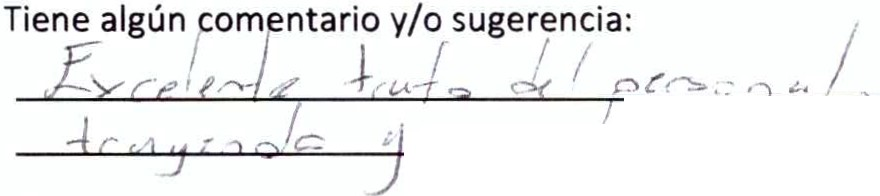 Tiene algún comentario y/o sugerencia:
Excelente trato del personal.
y